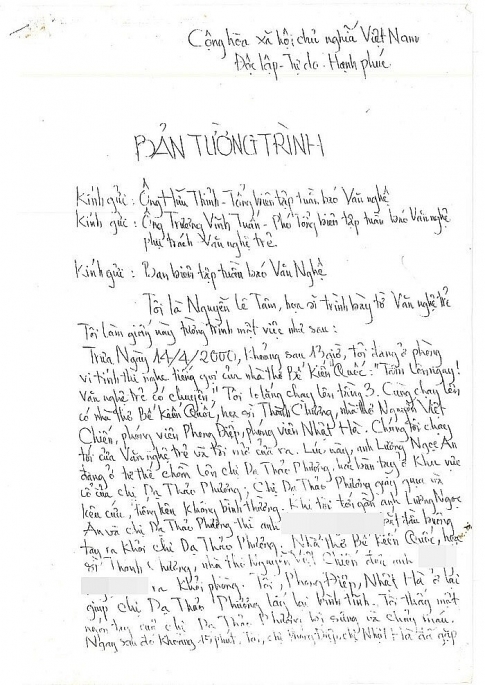 Cộng hòa xã hội chủ nghĩa Việt Nam
Độc lập - Tự do - Hạnh phúc
BẢN TƯỜNG TRÌNH
Kính gửi : Ông Hữu Thỉnh - Tổng biên tập tuần báo Văn nghệ
Kính gửi : Ông Trương Vĩnh Tuấn - Phó Tổng biên tập tuần báo Văn nghệ
phụ trách Văn nghệ trẻ.
Kính gửi : Ban biên tập tuần báo Văn Nghệ
Tôi là Nguyễn Lê Tâm, họa sĩ trình bày tờ Văn nghệ trẻ
Tôi làm giấy này tường trình một việc như sau :
Trưa Ngày 14/4/2000, khoảng sau 13 giờ, tôi đang ở phòng
vi tính thì nghe tiếng gọi của nhà thơ Bế Kiến Quốc : "Tâm lên ngay!
Văn nghệ trẻ có chuyện". Tôi lo lắng chạy lên tầng 3. Cùng chạy lên
có nhà thơ Bế Kiến Quốc, họa sĩ Thành Chương, nhà thơ Nguyễn Việt
Chiến, phóng viên Phong Điệp, phóng viên Nhật Hà. Chúng tôi chạy
tới cửa Văn nghệ trẻ và tôi mở cửa ra. Lúc này, anh Lương Ngọc An
đang ở tư thế chồm lên chị Dạ Thảo Phương, hai bàn tay ở khu vực
cổ của chị Dạ Thảo Phương, Chị Dạ Thảo Phương giãy giụa và
kêu cứu, tiếng kêu không bình thường. Khi tôi tới gần anh Lương Ngọc
An và chị Dạ Thảo Phương thì anh bắt đầu buông
tay ra khỏi chị Dạ Thảo Phương. Nhà thơ Bế Kiến Quốc, họa
sĩ Thành Chương, nhà thơ Nguyễn Việt Chiến đưa anh
ra khỏi phòng. Tôi, Phong Điệp, Nhật Hà ở lại
giúp chị Dạ Thảo Phương lấy lại bình tĩnh. Tôi thấy một
ngón tay của chị Dạ Thảo Phương bị sưng và chảy máu.
Ngay sau đó khoảng 15 phút, Tôi, chị Phong Điệp, chị Nhật Hà đã gặp